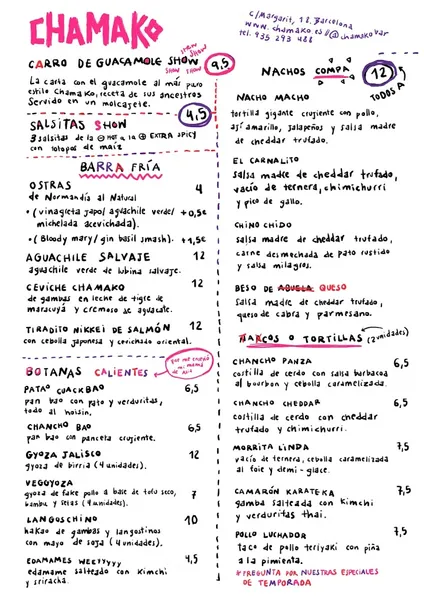 CHAMAKO
C/Margarit, 18, Barcelona
www.chamako.es @chamakobar
tel. 935 293 488
CARRO DE GUACAMOLE SHOW SHOW SHOW SHOW 9,5
La carta con el guacamole al más puro
estilo Chamako, receta de sus ancestros
Servido en un molcajete.
SALSITAS SHOW 4,5
3 salsitas de la HOT a la EXTRA SPICY
con totopos de maíz
BARRA FRÍA
OSTRAS 4
de Normandía al Natural
• (vinagreta japo/ aguachile verde/ + 0,5€
michelada acevichada).
• (Bloody mary/ gin basil smash). + 1,5€
AGUACHILE SALVAJE 12
aguachile verde de lubina salvaje.
CEVICHE CHAMAKO 12
de gambas en leche de tigre de
maracuyá y cremoso de aguacate.
TIRADITO NIKKEI DE SALMÓN 12
con cebolla japonesa y cevichado oriental.
BOTANAS CALIENTES
que me enseñó
mi mamá
de Asia
PATAO CUACKBAO 6,5
pan bao con pato y verduritas,
todo al hoisin.
CHANCHO BAO 6,5
pan bao con panceta crujiente.
GYOZA JALISCO 12
gyoza de birria (4 unidades).
VEGGYOZA
gyoza de fake pollo a base de tofu seco, 7
bambu y setas (4 unidades).
LANGOSCHINO 10
hakao de gambas y langostinos
con mayo de soja (4 unidades)
EDAMAMES WEEYYYYY 4,5
edamame salteado con Kimchi
y sriracha.
NACHOS COMPA 12 TODOS A
NACHO MACHO
tortilla gigante crujiente con pollo,
ají amarillo, jalapeños y salsa madre
de cheddar trufado.
EL CARNALITO
Salsa madre de cheddar trufado,
vacío de ternera, chimichurri
y pico de gallo.
CHINO CHIDO
salsa madre de cheddar trufado,
carne desmechada de pato rustido
y salsa milagros.
BESO DE ABUELA QUESO
Salsa madre de cheddar trufado,
queso de cabra y parmesano.
TAKCOS O TORTILLAS (2 unidades)
CHANCHO PANZA 6,5
costilla de cerdo con salsa barbacoa
al bourbon y cebolla caramelizada.
CHANCHO CHEDDAR 6,5
costilla de cerdo con cheddar
trufado y chimichurri.
MORRITA LINDA 7,5
vacío de ternera, cebolla caramelizada
al foie y demi-glace.
CAMARÓN KARATEKA 7,5
gamba salteada con Kimchi
y verduritas thai.
POLLO LUCHADOR 7,5
taco de pollo teriyaki con piña
a la pimienta.
#PREGUNTA POR NUESTRAS ESPECIALES
DE TEMPORADA